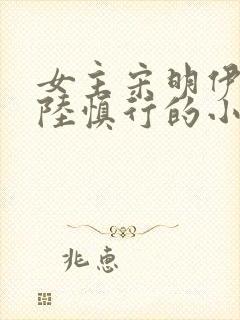 女主宋明伊
陸慎行的小
兆惠